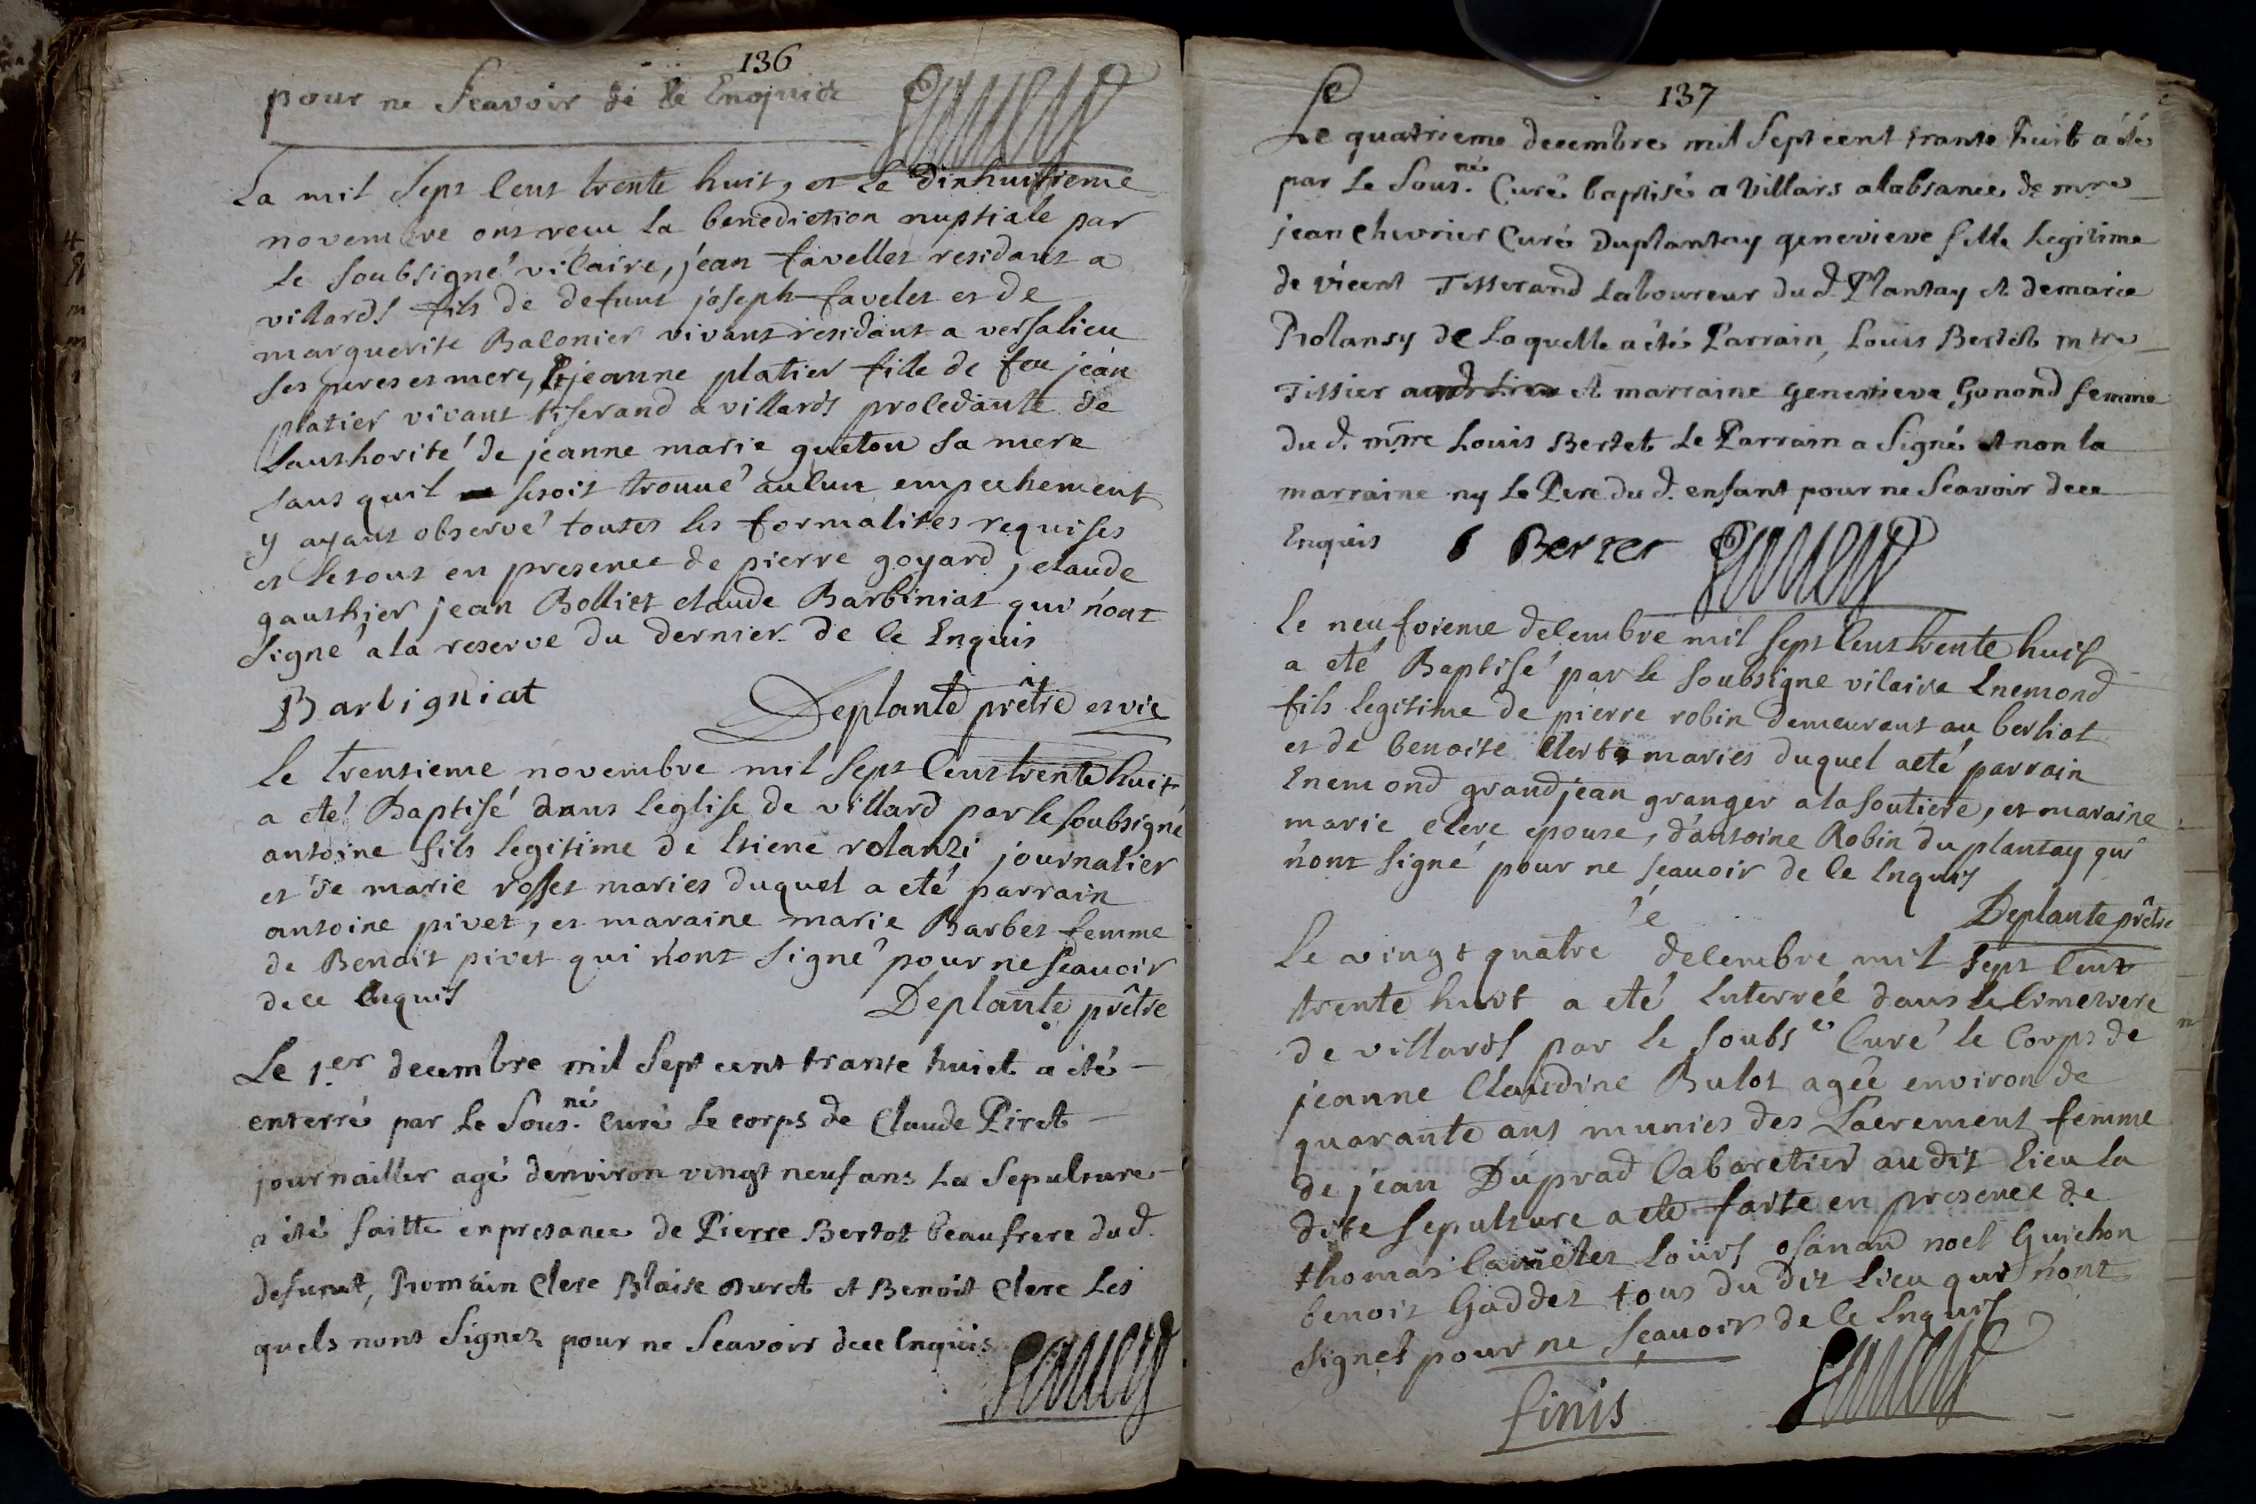 136
pour ne Scavoir de ce Enquict
La mil sept cent trente huit, et le dixhuitieme
novembre ont recu la benediction nuptiale par
le soubsigné vicaire, jean favellet residant a
villards fils de defunt joseph favelet et de
marguerite Balonier vivant residant a versalieu
ses peres et mere, & jeanne platier fille de feu jean
platier vivant tiserand a villards procedante de
lauthorité de jeanne marie gueton sa mere
sans quil se soit trouué aucun empechement
y ayant observé toutes les formalites requises
et le tout en presence de pierre goyard, claude
gauthier jean Bolliet claude Barbiniat qui n'ont
signé a la reserve du dernier de ce Enquis
Barbigniat Deplante prêtre et vic
le trensieme novembre mil sept cent trente huit
a eté Baptisé dans leglise de villard par le soubsigné
antoine fils legitime de Etiene rolanzi journalier
et de marie rosset maries duquel a eté parrain
antoine pivet, et maraine marie Barbet femme
de Benoit pivet qui n'ont signé pour ne sçauoir
de ce enquis Deplante prêtre
Le 1.er decembre mil Sept cent trante huict a été
enterré par Le Sous.né Curé Le corps de Claude Piret
journailler agé denviron vingt neuf ans La Sepulture
a été faitte en presance de Pierre Bertet beaufrere du d.
defunct, Romain Clerc Blaise Buret et Benoit Clerc Les
quels nont Signez pour ne Scavoir de ce Enquis
137
Le quatrieme decembre mil Sept cent trante huit a été
par Le Sous.né Curé baptisé a Villars a labsance de mre
jean Chevrier Curé Duplantay genevieve fille Legitime
de vicent Tisserand Laboureur du d. Plantay et de marie
Rolansy de Laquelle a été Parrain, Louis Bertet mtre
Tissier et marraine genevieve Gonond femme
du d. mtre Louis Bertet Le Parrain a Signé et non la
marraine ny Le Pere du d. enfant pour ne Scavoir de ce
Enquis Bertet
le neufvieme decembre mil sept cent trente huit
a eté Baptisé par le soubsigne vicaire Enemond
fils legitime de pierre robin demeurent au berliat
et de benoite Clert maries duquel a eté parrain
Enemond grandjean granger a la soutiere, et maraine
marie clere epouse, d'antoine Robin du plantay qui
n'ont signé pour ne sçauoir de ce enquis
Deplante prêtre
Le vingt quatre e decembre mil sept cent
trente huit a eté Enterrée dans le cimetiere
de villards par le soubs.e Curé le Corps de
jeanne Claudine Bulot agée environ de
quarante ans munies des Sacrement femme
de jean Duprad Cabaretier audit lieu la
dite sepulture a ete faite en presence de
thomas Camêlet Loüis osanand noel Guichon
benoit Gaddet tous du dit lieu qui n'ont
signet pour ne sçauoir de ce Enquis
finis